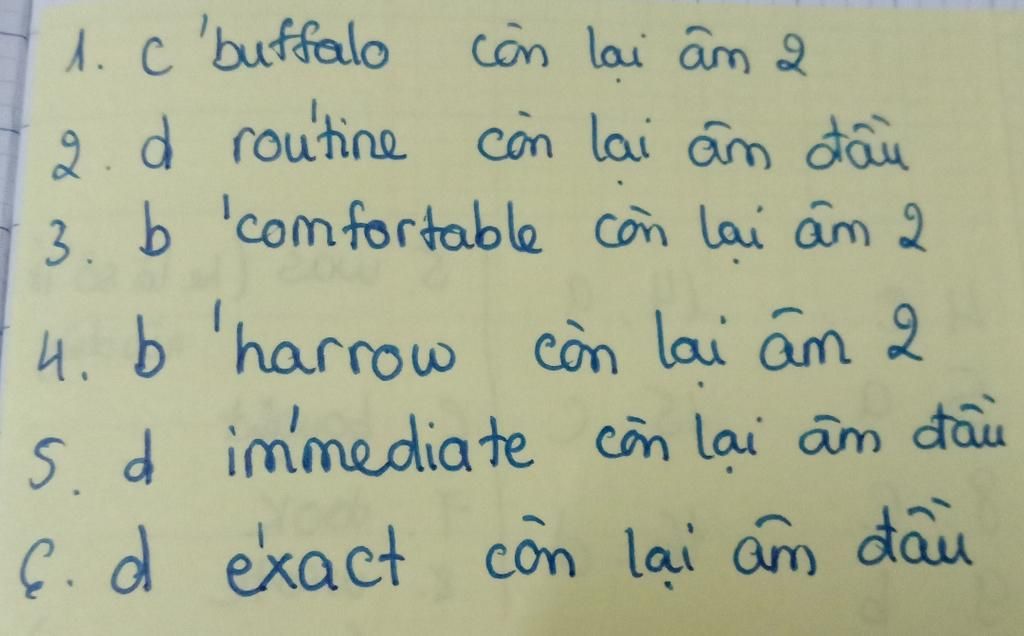 1. c 'buffalo còn lại âm 2
2. d rou'tine còn lại âm đầu
3. b 'comfortable còn lại âm 2
4. b 'harrow còn lại âm 2
5. d im'mediate còn lại âm đầu
6. d e'xact còn lại âm đầu